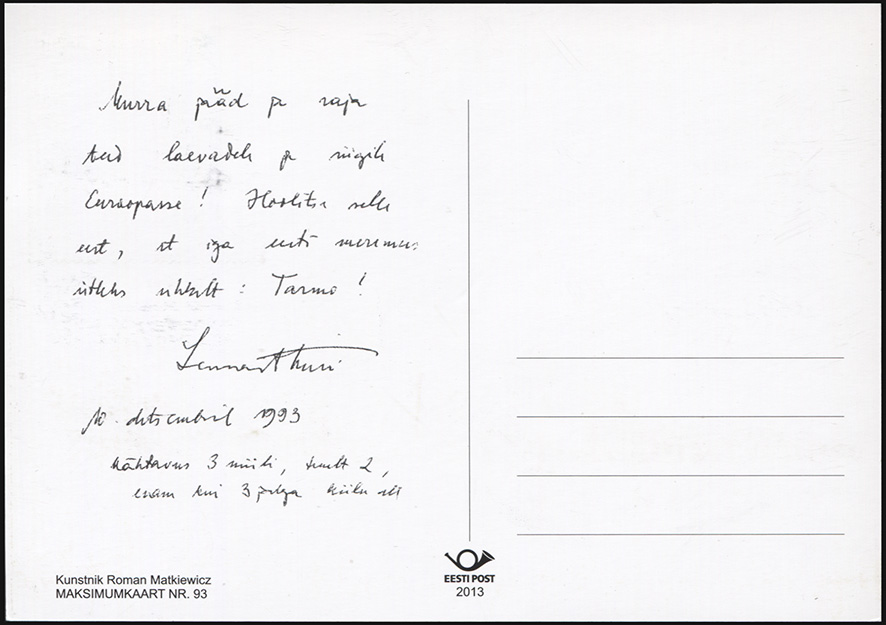 Murra jääd ja raja
teed laevadele ja riigile
Euroopasse! Hoolitse selle
eest, et iga eesti meremees
ütleks uhkelt: Tarmo!
Lennart Meri
10. detsembril 1993
Nähtavus 3 miili, tuult 2,
enam kui 3 jalga
Kunstnik Roman Matkiewicz
MAKSIMUMKAART NR. 93
EESTI POST
2013